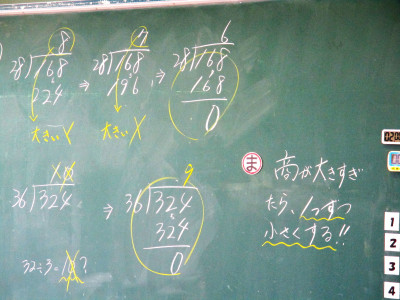 8
28)168
224
大きい ✓
⇒
7
28)168
196
大きい ✓
⇒
6
28)168
168
0
10
36)324
32÷3=10?
⇒
9
36)324
324
0
ま 商が大きすぎ
たら、1つずつ
小さくする!!
1
2
3
4